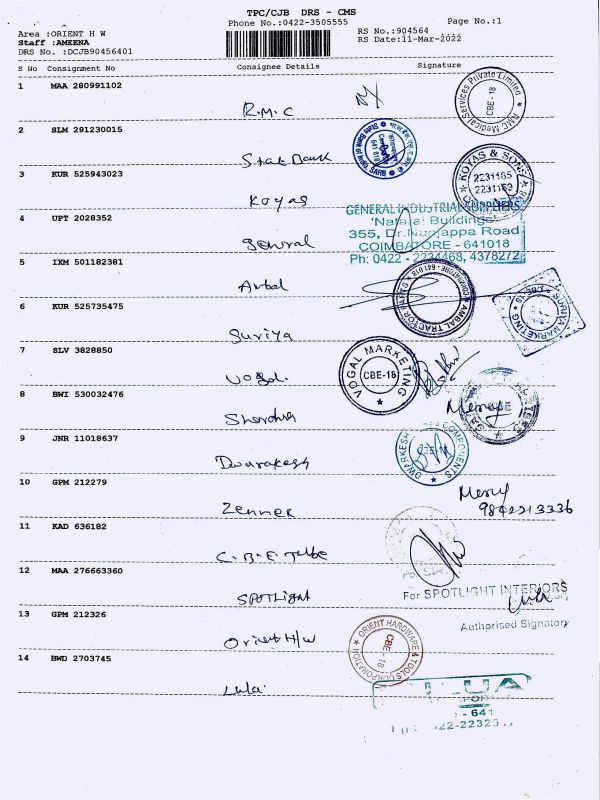 TPC/CJB DRS - CMS
Phone No.:0422-3505555
Page No.:1
Area :ORIENT H W
Staff :AMEENA
DRS No. :DCJB90456401
RS No.:904564
RS Date:11-Mar-2022
S No Consignment No Consignee Details Signature
1 MAA 280991102 R.M.C
RMC Medical Services Private Limited
CBE-18
2 SLM 291230015 State Bank
State Bank of India, SARB
3 KUR 525943023 Koyas
KOYAS & SONS
2231165
2231169
4 UPT 2028352 General
GENERAL INDUSTRIAL SUPPLIERS
'Nataraj Buildings'
355, Dr.Nanjappa Road
COIMBATORE - 641018
Ph: 0422 - 2234468, 4378272
5 IXM 501182381 Ambal
AMBAL TRACTOR PARTS
COIMBATORE - 641 018
6 KUR 525735475 Suriya
SURIYA MARKETING
CBE-18
7 SLV 3828850 Vogal.
VOGAL MARKETING
CBE-18
8 BWI 530032476
9 JNR 11018637 Dwarakesh
DWARKESH COMPONENTS
10 GPM 212279 Zenner
Mercy
9842213336
11 KAD 636182 C.B.E Tube
12 MAA 276663360 SPOTLight
For SPOTLIGHT INTERIORS
Authorised Signatory
13 GPM 212326 Orient H/W
ORIENT HARDWARE & TOOLS CORPORATION
CBE-18
14 BWD 2703745 Lula.
- 641